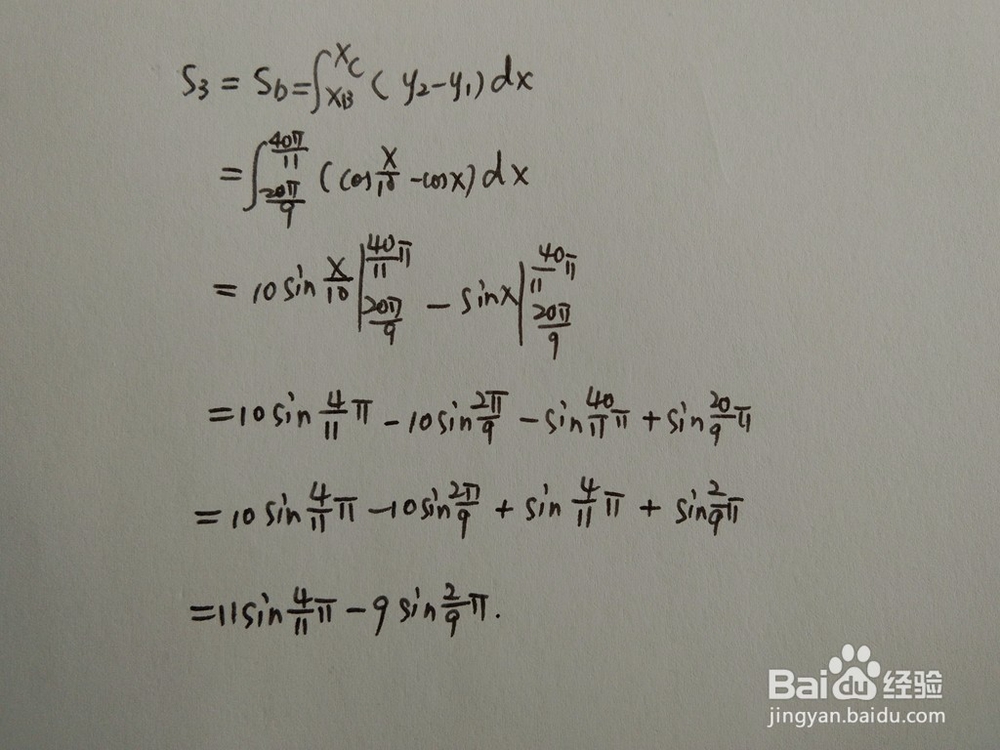 S₃ = S_b = ∫_{x_B}^{x_C} (y₂-y₁)dx
= ∫_{20π/9}^{40π/11} (cos x/10 - cosx)dx
= 10 sin x/10 |_{20π/9}^{40/11 π} - sinx |_{20π/9}^{40/11 π}
= 10 sin 4/11 π - 10 sin 2π/9 - sin 40/11 π + sin 20/9 π
= 10 sin 4/11 π - 10 sin 2π/9 + sin 4/11 π + sin 2/9 π
= 11 sin 4/11 π - 9 sin 2/9 π.
Baidu 经验
jingyan.baidu.com